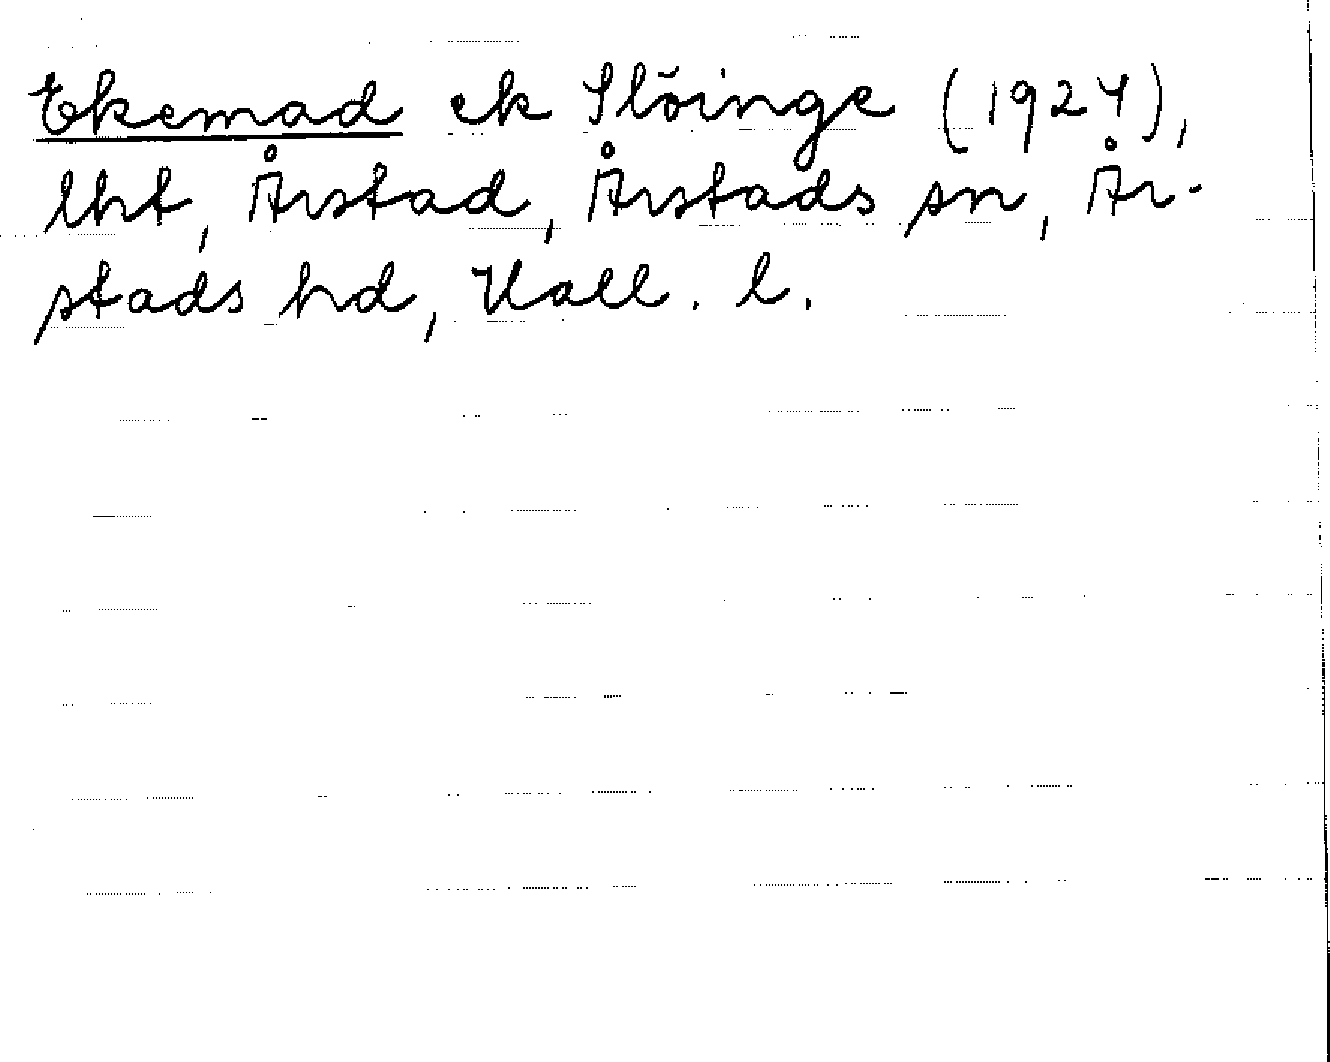 Ekemad ek Slöinge (1924),
lht, Årstad, Årstads sn, År-
stads hd, Hall. l.